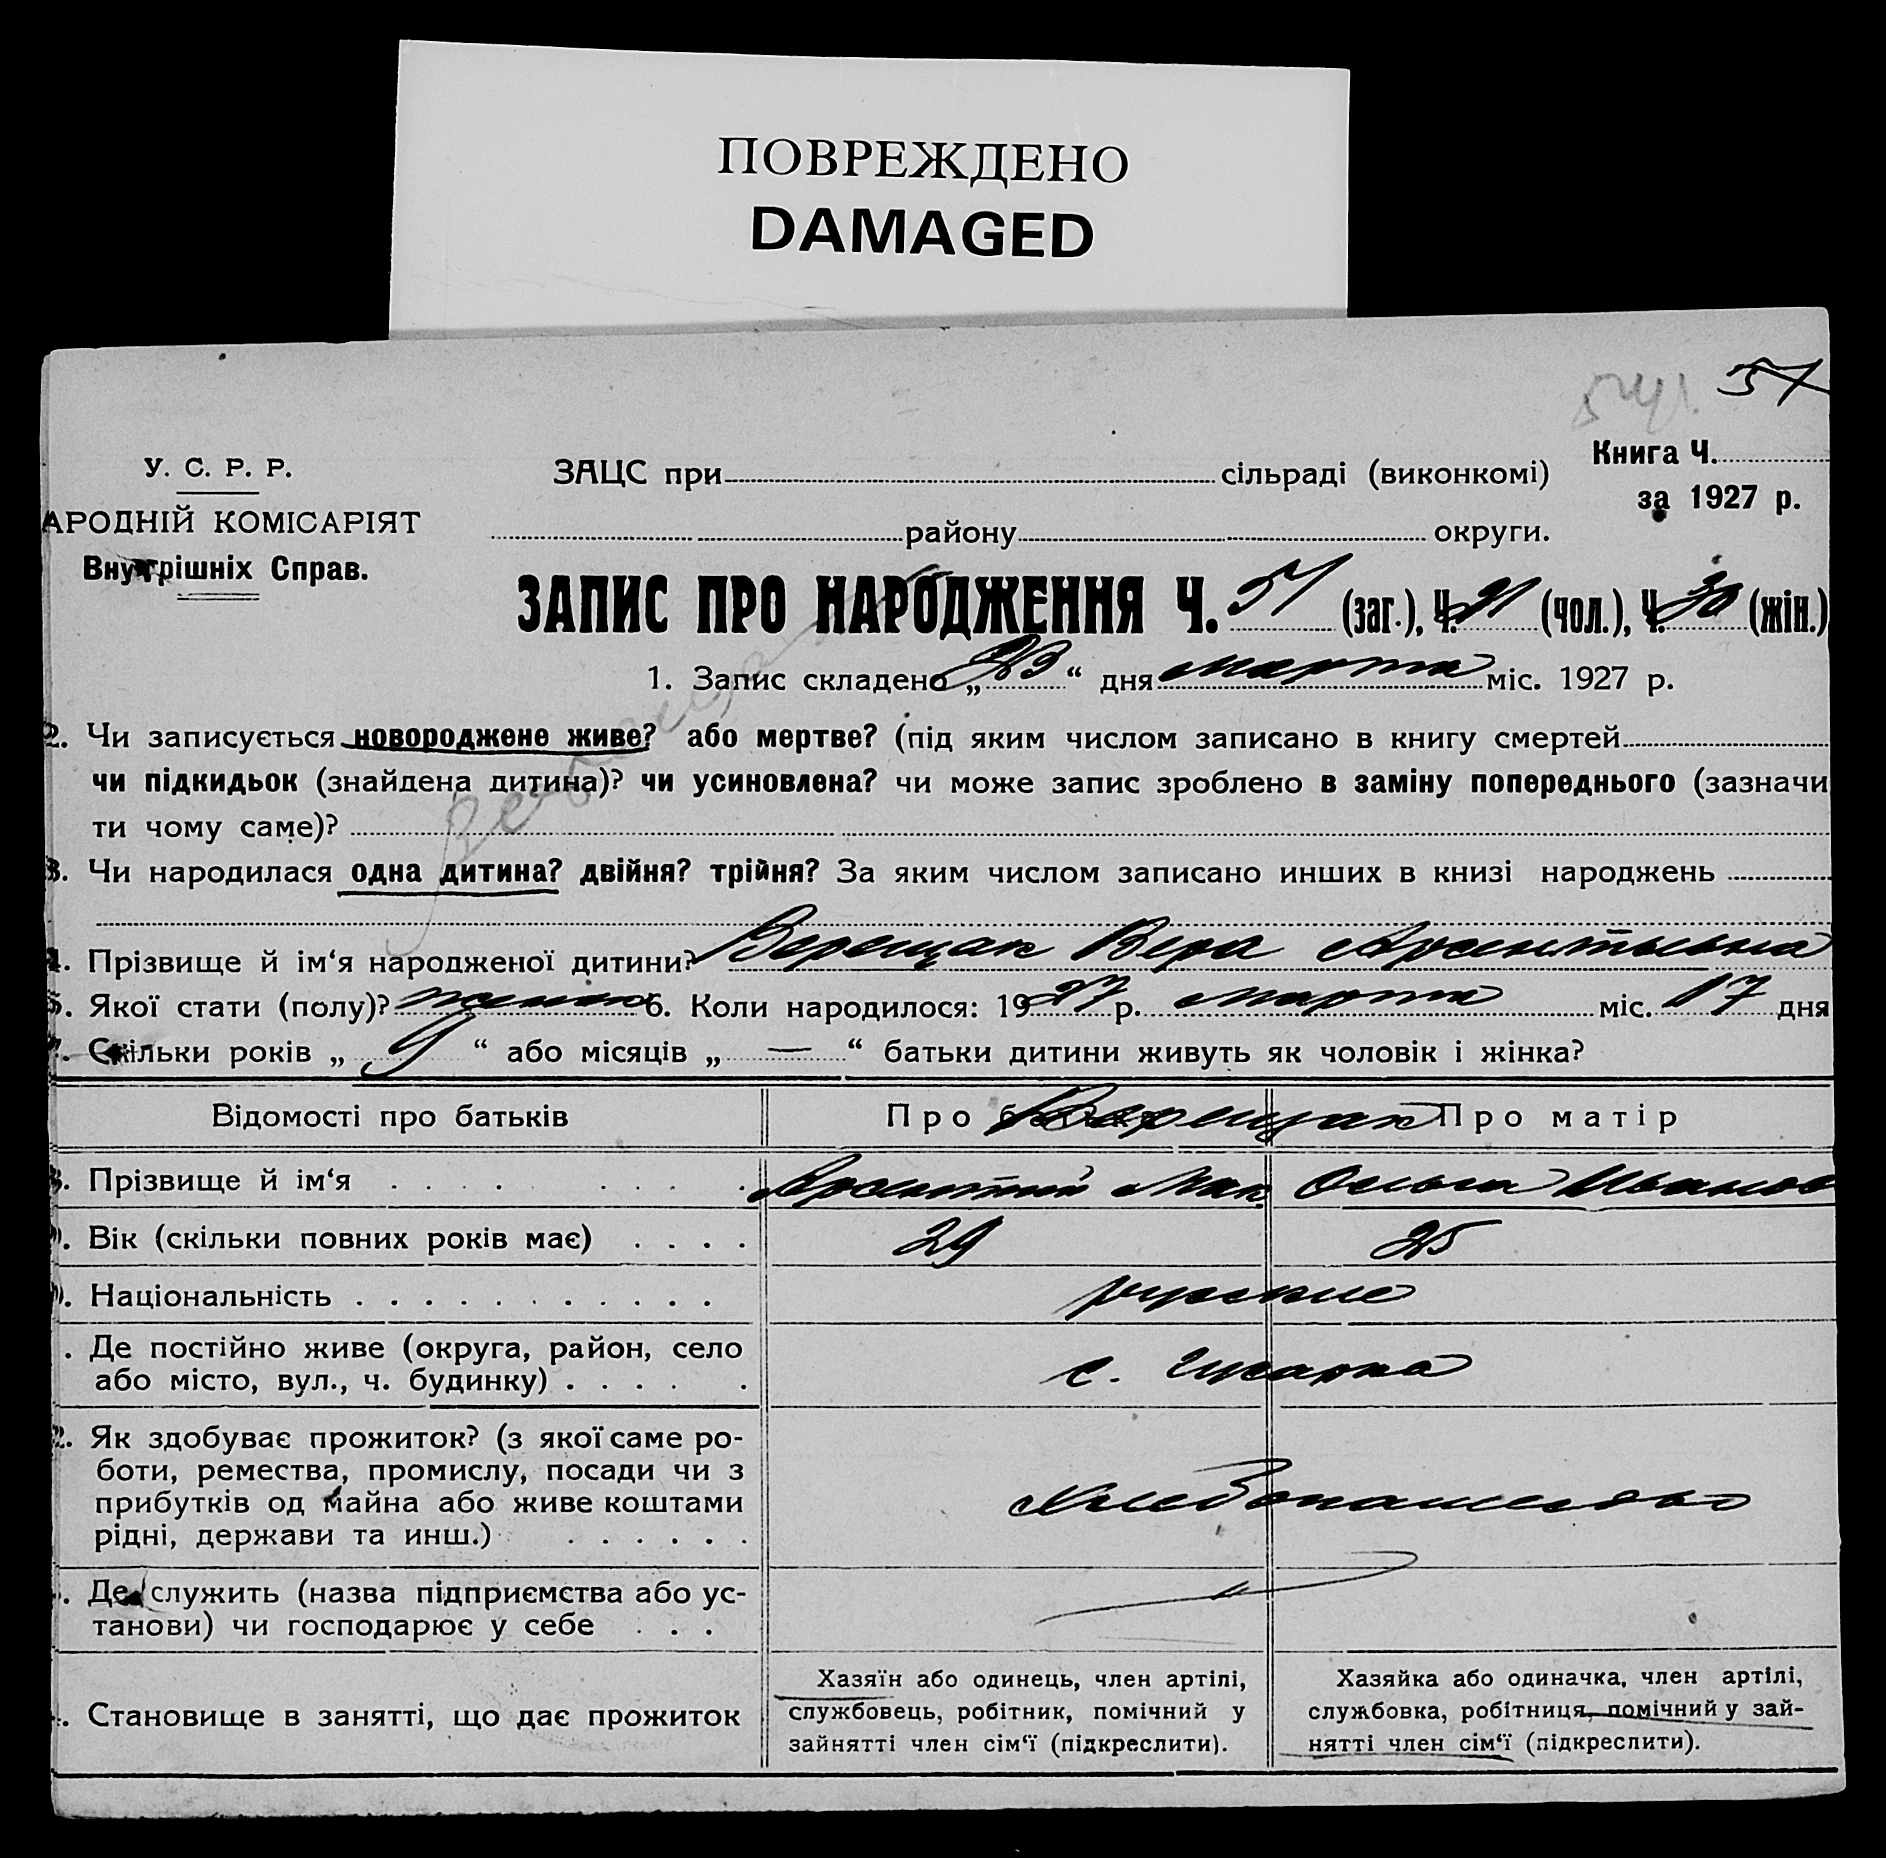 ПОВРЕЖДЕНО
DAMAGED
57
У. С. Р. Р.
АРОДНІЙ КОМІСАРІЯТ
Внутрішніх Справ.
ЗАЦС при сільраді (виконкомі)
Книга Ч.
за 1927 р.
району округи.
ЗАПИС ПРО НАРОДЖЕННЯ Ч. 51 (заг.), Ч. 21 (чол.), Ч. 30 (жін.)
1. Запис складено „23“ дня марта міс. 1927 р.
2. Чи записується новороджене живе? або мертве? (під яким числом записано в книгу смертей
чи підкидьок (знайдена дитина)? чи усиновлена? чи може запис зроблено в заміну попереднього (зазначи
ти чому саме)?
3. Чи народилася одна дитина? двійня? трійня? За яким числом записано инших в книзі народжень
4. Прізвище й ім‘я народженої дитини? Верещак Вера Арсентьевна
5. Якої стати (полу)? женск 6. Коли народилося: 1927 р. марта міс. 17 дня
7. Скільки років „9“ або місяців „—“ батьки дитини живуть як чоловік і жінка?
Відомості про батьків Про батька Верещак Про матір
Прізвище й ім‘я Арсентий Мак Ольга Иванов
Вік (скільки повних років має) 29 25
Національність русские
Де постійно живе (округа, район, село
або місто, вул., ч. будинку) с.
2. Як здобуває прожиток? (з якої саме ро-
боти, ремества, промислу, посади чи з
прибутків од майна або живе коштами
рідні, держави та инш.) Хлебопашество
Де служить (назва підприємства або ус-
танови) чи господарює у себе
Становище в занятті, що дає прожиток
Хазяїн або одинець, член артілі,
службовець, робітник, помічний у
зайнятті член сім‘ї (підкреслити).
Хазяйка або одиначка, член артілі,
службовка, робітниця, помічний у зай-
нятті член сім‘ї (підкреслити).